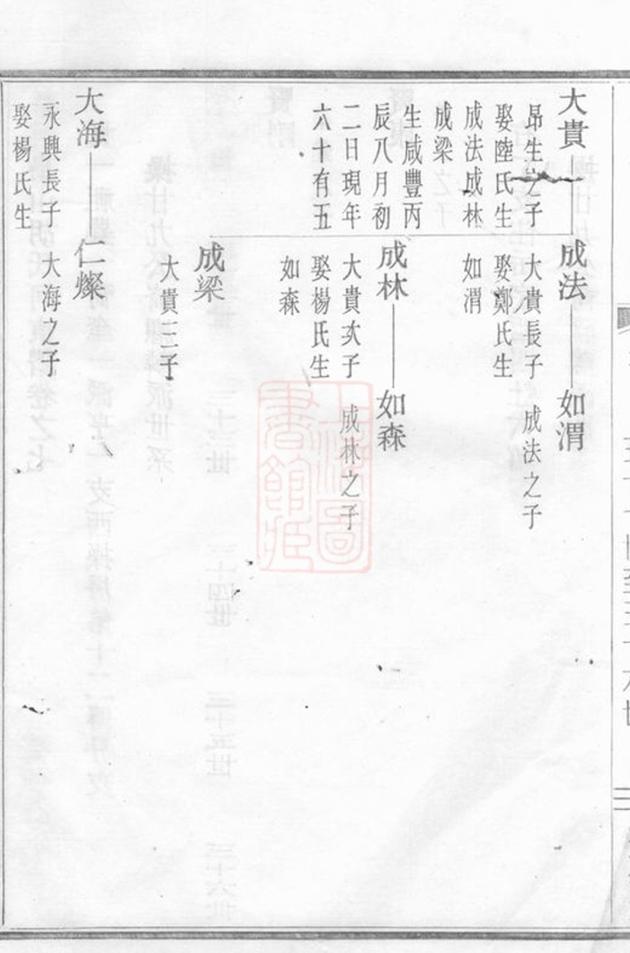 大貴
昂生之子
娶陸氏生
成法成林
成梁
生咸豐丙
辰八月初
二日現年
六十有五
成法
大貴長子
娶鄭氏生
如渭
如渭
成法之子
成林
大貴次子
娶楊氏生
如森
如森
成林之子
成梁
大貴三子
大海
永興長子
娶楊氏生
仁燦
大海之子